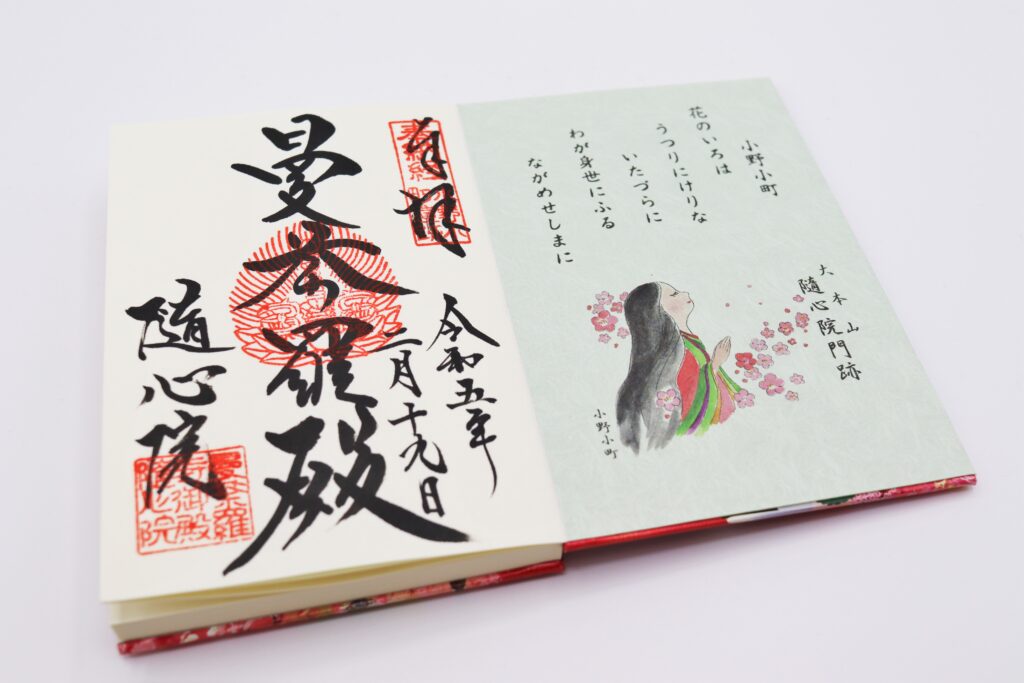 小野小町
花のいろは
うつりにけりな
いたづらに
わが身世にふる
ながめせしまに
大本山
隨心院門跡
小野小町
奉拝
令和五年
二月十九日
曼荼羅殿
隨心院
曼荼羅
寺御殿
隨心院